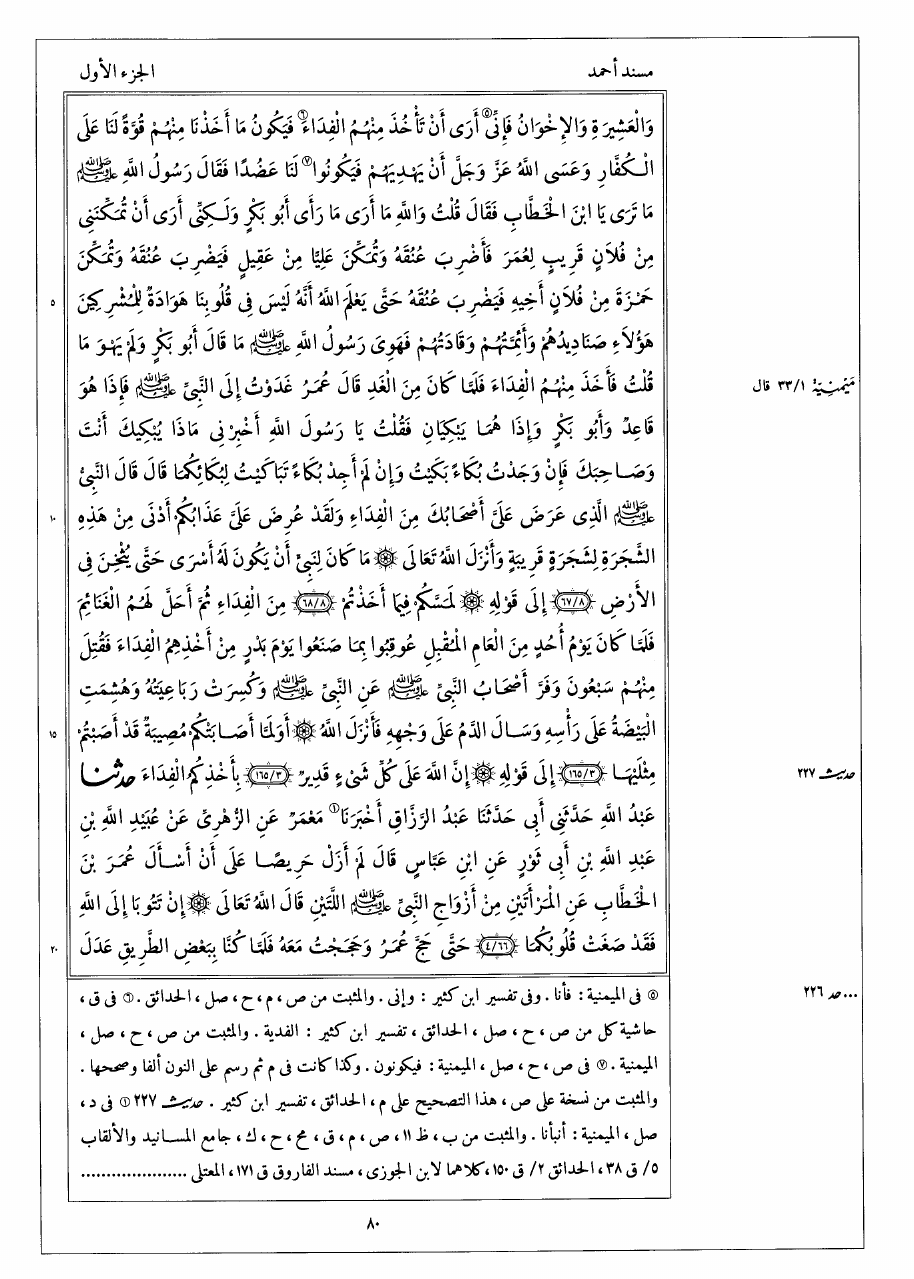 مسند أحمد
الجزء الأول
وَالْعَشِيرَةِ وَالإِخْوَانُ فَإِنِّى⑤ أَرَى أَنْ تَأْخُذَ مِنْهُمُ الْفِدَاءَ⑥ فَيَكُونُ مَا أَخَذْنَا مِنْهُمْ قُوَّةً لَنَا عَلَى
الْكُفَّارِ وَعَسَى اللَّهُ عَزَّ وَجَلَّ أَنْ يَهْدِيَهُمْ فَيَكُونُوا⑦ لَنَا عَضُدًا فَقَالَ رَسُولُ اللَّهِ ﷺ
مَا تَرَى يَا ابْنَ الْخَطَّابِ فَقَالَ قُلْتُ وَاللَّهِ مَا أَرَى مَا رَأَى أَبُو بَكْرٍ وَلَكِنِّى أَرَى أَنْ تُمَكِّنَنِى
مِنْ فُلاَنٍ قَرِيبٍ لِعُمَرَ فَأَضْرِبَ عُنُقَهُ وَتُمَكِّنَ عَلِيًّا مِنْ عَقِيلٍ فَيَضْرِبَ عُنُقَهُ وَتُمَكِّنَ
حَمْزَةَ مِنْ فُلاَنٍ أَخِيهِ فَيَضْرِبَ عُنُقَهُ حَتَّى يَعْلَمَ اللَّهُ أَنَّهُ لَيْسَ فِى قُلُوبِنَا هَوَادَةٌ لِلْمُشْرِكِينَ
٥
هَؤُلاَءِ صَنَادِيدُهُمْ وَأَئِمَّتُهُمْ وَقَادَتُهُمْ فَهَوِىَ رَسُولُ اللَّهِ ﷺ مَا قَالَ أَبُو بَكْرٍ وَلَمْ يَهْوَ مَا
قُلْتُ فَأَخَذَ مِنْهُمُ الْفِدَاءَ فَلَمَّا كَانَ مِنَ الْغَدِ قَالَ عُمَرُ غَدَوْتُ إِلَى النَّبِىِّ ﷺ فَإِذَا هُوَ
مَيْمَنِيَّة ٣٣/١ قال
قَاعِدٌ وَأَبُو بَكْرٍ وَإِذَا هُمَا يَبْكِيَانِ فَقُلْتُ يَا رَسُولَ اللَّهِ أَخْبِرْنِى مَاذَا يُبْكِيكَ أَنْتَ
وَصَاحِبَكَ فَإِنْ وَجَدْتُ بُكَاءً بَكَيْتُ وَإِنْ لَمْ أَجِدْ بُكَاءً تَبَاكَيْتُ لِبُكَائِكُمَا قَالَ قَالَ النَّبِىُّ
ﷺ الَّذِى عَرَضَ عَلَىَّ أَصْحَابُكَ مِنَ الْفِدَاءِ وَلَقَدْ عُرِضَ عَلَىَّ عَذَابُكُمْ أَدْنَى مِنْ هَذِهِ
١٠
الشَّجَرَةِ لِشَجَرَةٍ قَرِيبَةٍ وَأَنْزَلَ اللَّهُ تَعَالَى ۞ مَا كَانَ لِنَبِىٍّ أَنْ يَكُونَ لَهُ أَسْرَى حَتَّى يُثْخِنَ فِى
الأَرْضِ (٦٧/٨) إِلَى قَوْلِهِ ۞ لَمَسَّكُمْ فِيمَا أَخَذْتُمْ (٦٨/٨) مِنَ الْفِدَاءِ ثُمَّ أَحَلَّ لَهُمُ الْغَنَائِمَ
فَلَمَّا كَانَ يَوْمُ أُحُدٍ مِنَ الْعَامِ الْمُقْبِلِ عُوقِبُوا بِمَا صَنَعُوا يَوْمَ بَدْرٍ مِنْ أَخْذِهِمُ الْفِدَاءَ فَقُتِلَ
مِنْهُمْ سَبْعُونَ وَفَرَّ أَصْحَابُ النَّبِىِّ ﷺ عَنِ النَّبِىِّ ﷺ وَكُسِرَتْ رَبَاعِيَتُهُ وَهُشِمَتِ
الْبَيْضَةُ عَلَى رَأْسِهِ وَسَالَ الدَّمُ عَلَى وَجْهِهِ فَأَنْزَلَ اللَّهُ ۞ أَوَلَمَّا أَصَابَتْكُمْ مُصِيبَةٌ قَدْ أَصَبْتُمْ
١٥
مِثْلَيْهَا (١٦٥/٣) إِلَى قَوْلِهِ ۞ إِنَّ اللَّهَ عَلَى كُلِّ شَىْءٍ قَدِيرٌ (١٦٥/٣) بِأَخْذِكُمُ الْفِدَاءَ حدثنا
حديث ٢٢٧
عَبْدُ اللَّهِ حَدَّثَنِى أَبِى حَدَّثَنَا عَبْدُ الرَّزَّاقِ أَخْبَرَنَا① مَعْمَرٌ عَنِ الزُّهْرِىِّ عَنْ عُبَيْدِ اللَّهِ بْنِ
عَبْدِ اللَّهِ بْنِ أَبِى ثَوْرٍ عَنِ ابْنِ عَبَّاسٍ قَالَ لَمْ أَزَلْ حَرِيصًا عَلَى أَنْ أَسْأَلَ عُمَرَ بْنَ
الْخَطَّابِ عَنِ الْمَرْأَتَيْنِ مِنْ أَزْوَاجِ النَّبِىِّ ﷺ اللَّتَيْنِ قَالَ اللَّهُ تَعَالَى ۞ إِنْ تَتُوبَا إِلَى اللَّهِ
فَقَدْ صَغَتْ قُلُوبُكُمَا (٤/٦٦) حَتَّى حَجَّ عُمَرُ وَحَجَجْتُ مَعَهُ فَلَمَّا كُنَّا بِبَعْضِ الطَّرِيقِ عَدَلَ
٢٠
⑤ فى الميمنية : فأنا . وفى تفسير ابن كثير : وإنى . والمثبت من ص ، م ، ح ، صل ، الحدائق . ⑥ فى ق ،
...حد ٢٢٦
حاشية كل من ص ، ح ، صل ، الحدائق ، تفسير ابن كثير : الفدية . والمثبت من ص ، ح ، صل ،
الميمنية . ⑦ فى ص ، ح ، صل ، الميمنية : فيكونون . وكذا كانت فى م ثم رسم على النون ألفا وصححها .
والمثبت من نسخة على ص ، هذا التصحيح على م ، الحدائق ، تفسير ابن كثير . حديث ٢٢٧ ① فى د ،
صل ، الميمنية : أنبأنا . والمثبت من ب ، ظ ١١ ، ص ، م ، ق ، مح ، ح ، ك ، جامع المسانيد والألقاب
٥/ ق ٣٨ ، الحدائق ٢/ ق ١٥٠ ، كلاهما لابن الجوزى ، مسند الفاروق ق ١٧١ ، المعتلى .....................
٨٠